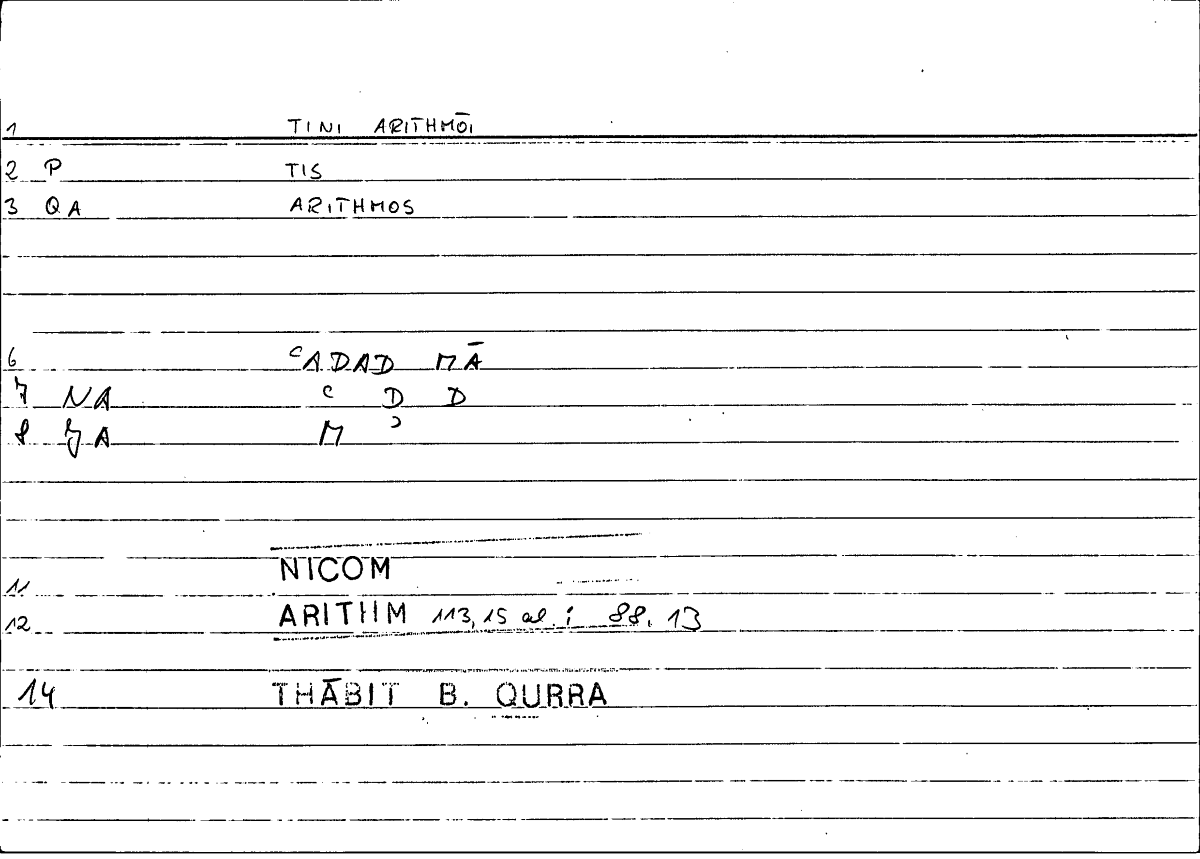 1 TINI ARITHMŌI
2 P TIS
3 QA ARITHMOS
6 ᶜADAD MĀ
7 NA ᶜ D D
8 ZA M ʾ
11 NICOM
12 ARITHM 113,15 al. ; 88, 13
14 THĀBIT B. QURRA